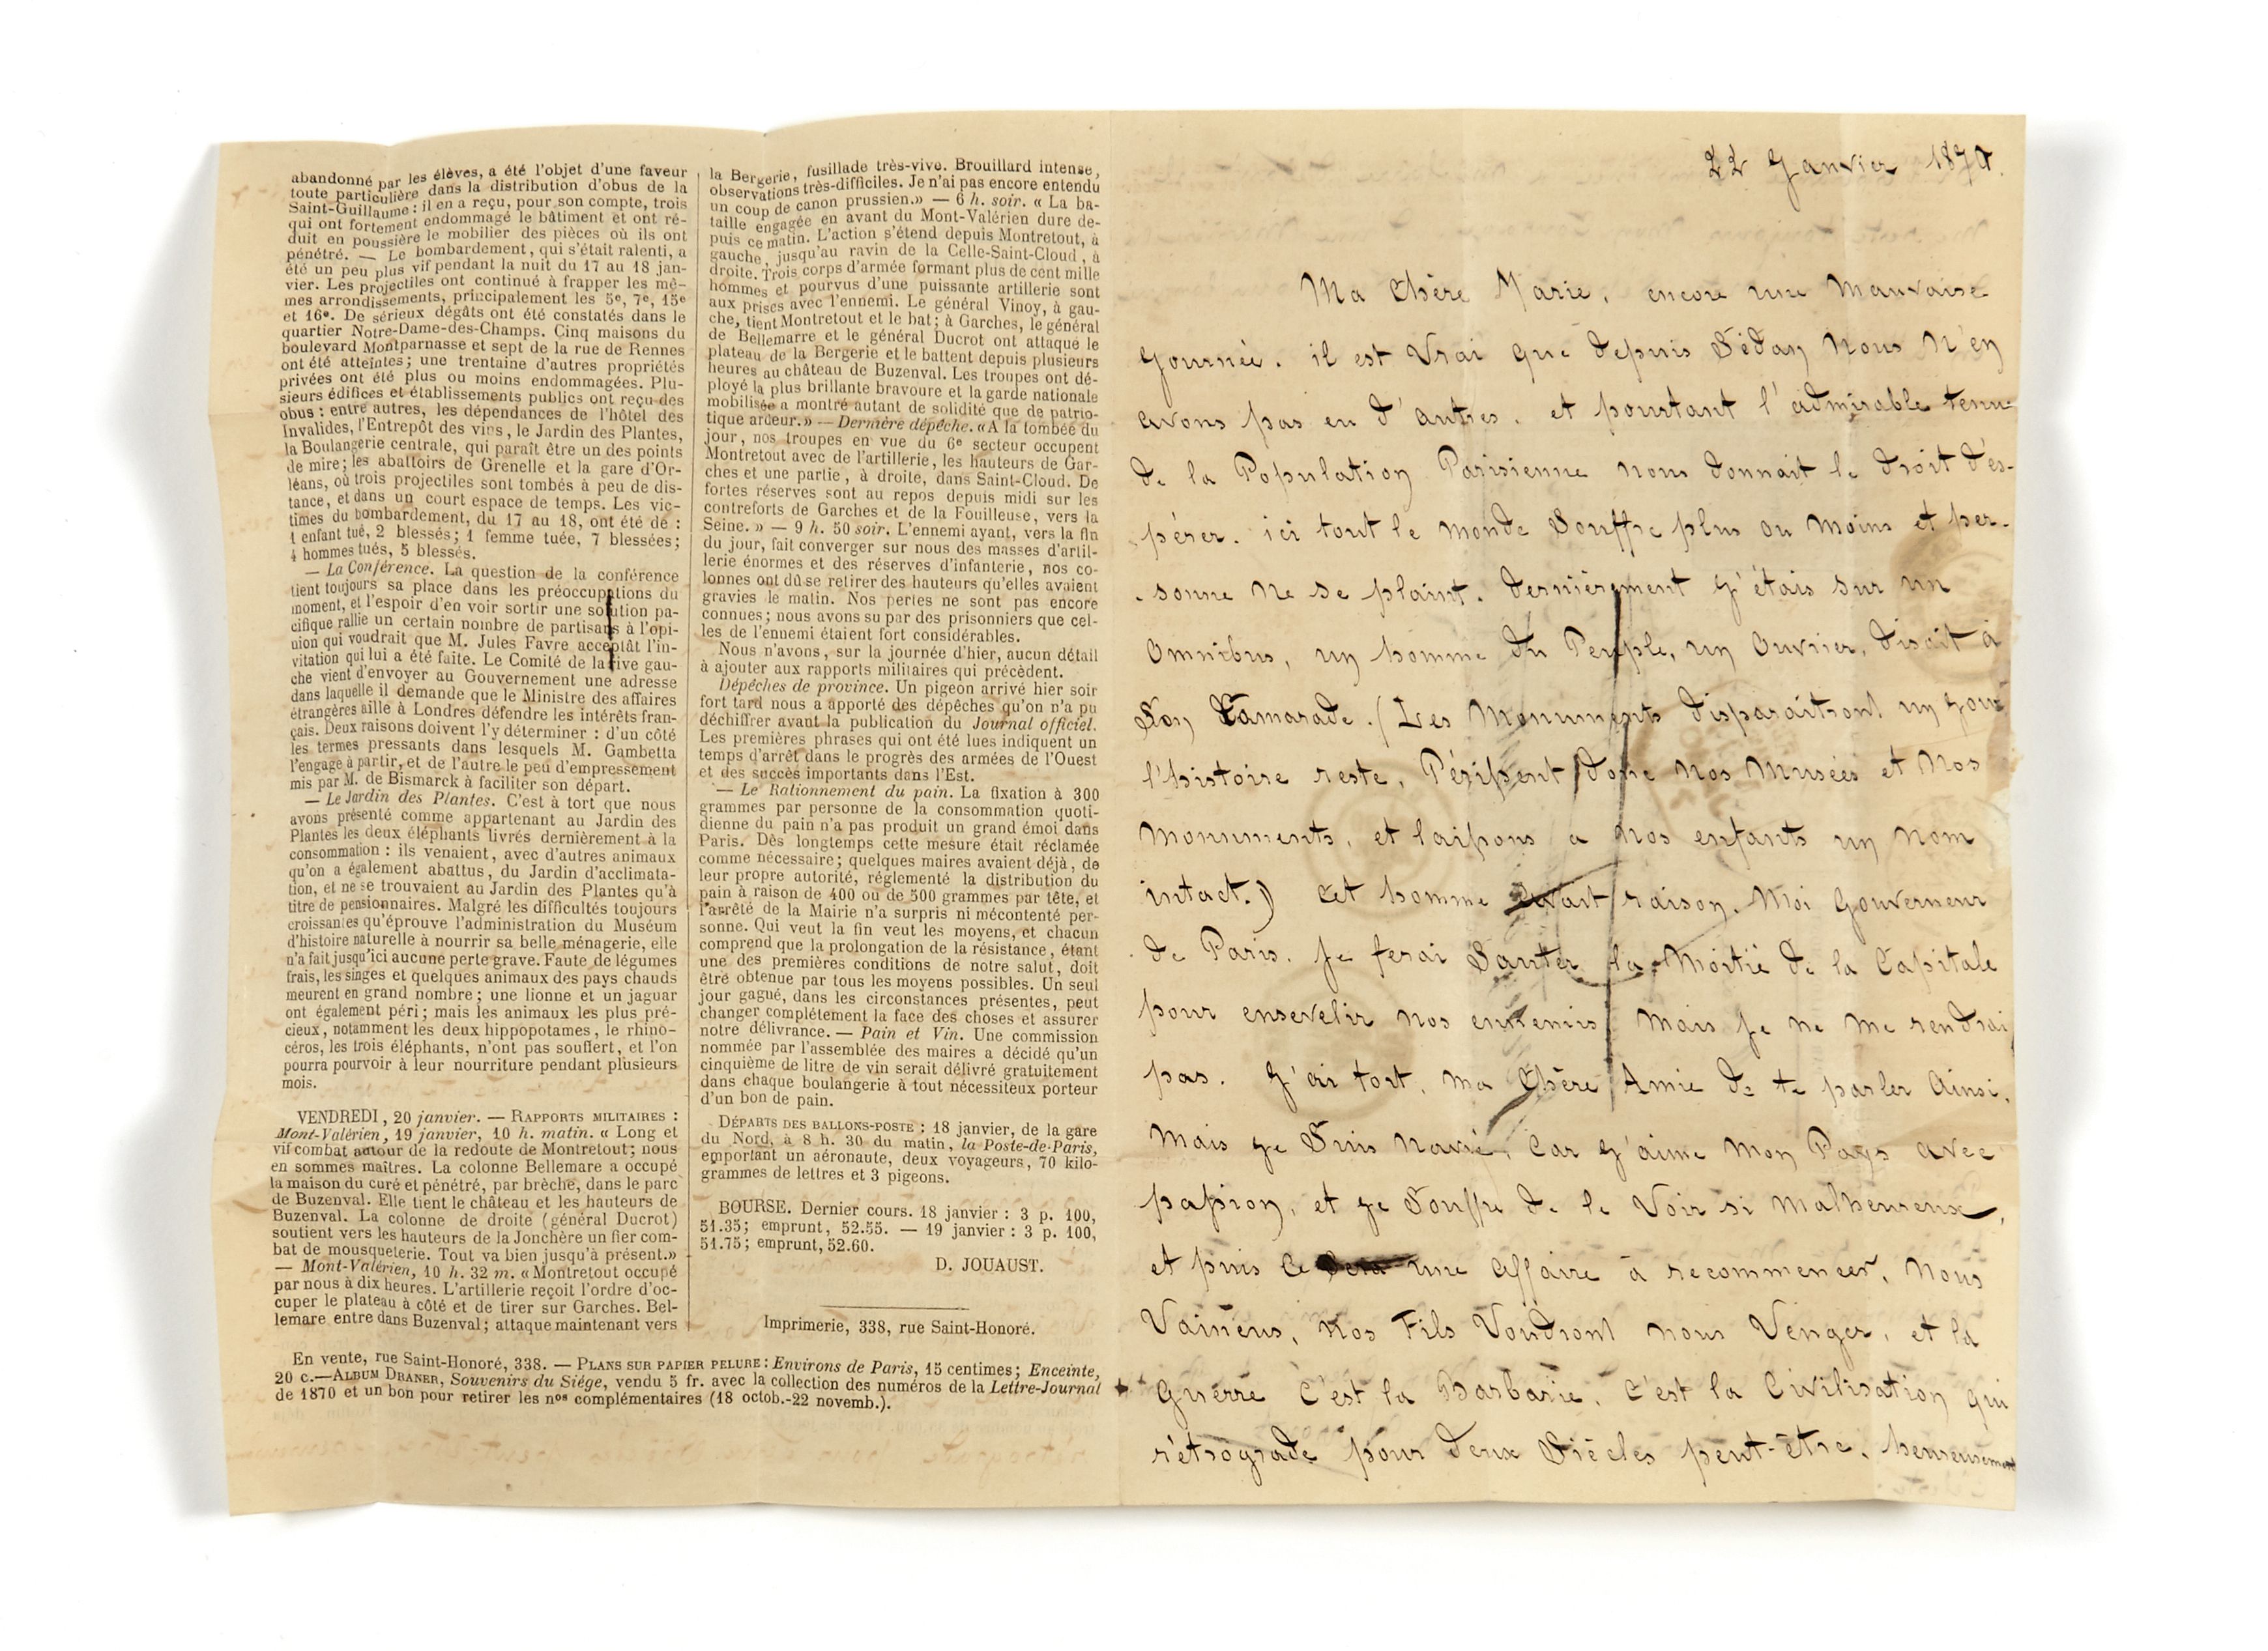 abandonné par les élèves, a été l'objet d'une faveur
toute particulière dans la distribution d'obus de la
Saint-Guillaume : il en a reçu, pour son compte, trois
qui ont fortement endommagé le bâtiment et ont ré-
duit en poussière le mobilier des pièces où ils ont
pénétré. — Le bombardement, qui s'était ralenti, a
été un peu plus vif pendant la nuit du 17 au 18 jan-
vier. Les projectiles ont continué à frapper les mê-
mes arrondissements, principalement les 5e, 7e, 15e
et 16e. De sérieux dégâts ont été constatés dans le
quartier Notre-Dame-des-Champs. Cinq maisons du
boulevard Montparnasse et sept de la rue de Rennes
ont été atteintes; une trentaine d'autres propriétés
privées ont été plus ou moins endommagées. Plu-
sieurs édifices et établissements publics ont reçu des
obus : entre autres, les dépendances de l'hôtel des
Invalides, l'Entrepôt des vins, le Jardin des Plantes,
la Boulangerie centrale, qui paraît être un des points
de mire; les abattoirs de Grenelle et la gare d'Or-
léans, où trois projectiles sont tombés à peu de dis-
tance, et dans un court espace de temps. Les vic-
times du bombardement, du 17 au 18, ont été de :
1 enfant tué, 2 blessés; 1 femme tuée, 7 blessées;
4 hommes tués, 5 blessés.
— La Conférence. La question de la conférence
tient toujours sa place dans les préoccupations du
moment, et l'espoir d'en voir sortir une solution pa-
cifique rallie un certain nombre de partisans à l'opi-
nion qui voudrait que M. Jules Favre acceptât l'in-
vitation qui lui a été faite. Le Comité de la rive gau-
che vient d'envoyer au Gouvernement une adresse
dans laquelle il demande que le Ministre des affaires
étrangères aille à Londres défendre les intérêts fran-
çais. Deux raisons doivent l'y déterminer : d'un côté
les termes pressants dans lesquels M. Gambetta
l'engage à partir, et de l'autre le peu d'empressement
mis par M. de Bismarck à faciliter son départ.
— Le Jardin des Plantes. C'est à tort que nous
avons présenté comme appartenant au Jardin des
Plantes les deux éléphants livrés dernièrement à la
consommation : ils venaient, avec d'autres animaux
qu'on a également abattus, du Jardin d'acclimata-
tion, et ne se trouvaient au Jardin des Plantes qu'à
titre de pensionnaires. Malgré les difficultés toujours
croissantes qu'éprouve l'administration du Muséum
d'histoire naturelle à nourrir sa belle ménagerie, elle
n'a fait jusqu'ici aucune perte grave. Faute de légumes
frais, les singes et quelques animaux des pays chauds
meurent en grand nombre; une lionne et un jaguar
ont également péri; mais les animaux les plus pré-
cieux, notamment les deux hippopotames, le rhino-
céros, les trois éléphants, n'ont pas souffert, et l'on
pourra pourvoir à leur nourriture pendant plusieurs
mois.
VENDREDI, 20 janvier. — RAPPORTS MILITAIRES :
Mont-Valérien, 19 janvier, 10 h. matin. « Long et
vif combat autour de la redoute de Montretout; nous
en sommes maîtres. La colonne Bellemare a occupé
la maison du curé et pénétré, par brèche, dans le parc
de Buzenval. Elle tient le château et les hauteurs de
Buzenval. La colonne de droite (général Ducrot)
soutient vers les hauteurs de la Jonchère un fier com-
bat de mousqueterie. Tout va bien jusqu'à présent.»
— Mont-Valérien, 10 h. 32 m. « Montretout occupé
par nous à dix heures. L'artillerie reçoit l'ordre d'oc-
cuper le plateau à côté et de tirer sur Garches. Bel-
lemare entre dans Buzenval; attaque maintenant vers
la Bergerie, fusillade très-vive. Brouillard intense,
observations très-difficiles. Je n'ai pas encore entendu
un coup de canon prussien.» — 6 h. soir. « La ba-
taille engagée en avant du Mont-Valérien dure de-
puis ce matin. L'action s'étend depuis Montretout, à
gauche, jusqu'au ravin de la Celle-Saint-Cloud, à
droite. Trois corps d'armée formant plus de cent mille
hommes et pourvus d'une puissante artillerie sont
aux prises avec l'ennemi. Le général Vinoy, à gau-
che, tient Montretout et le bat; à Garches, le général
de Bellemarre et le général Ducrot ont attaqué le
plateau de la Bergerie et le battent depuis plusieurs
heures au château de Buzenval. Les troupes ont dé-
ployé la plus brillante bravoure et la garde nationale
mobilisée a montré autant de solidité que de patrio-
tique ardeur.» — Dernière dépêche. «A la tombée du
jour, nos troupes en vue du 6e secteur occupent
Montretout avec de l'artillerie, les hauteurs de Gar-
ches et une partie, à droite, dans Saint-Cloud. De
fortes réserves sont au repos depuis midi sur les
contreforts de Garches et de la Fouilleuse, vers la
Seine. » — 9 h. 50 soir. L'ennemi ayant, vers la fin
du jour, fait converger sur nous des masses d'artil-
lerie énormes et des réserves d'infanterie, nos co-
lonnes ont dû se retirer des hauteurs qu'elles avaient
gravies le matin. Nos pertes ne sont pas encore
connues; nous avons su par des prisonniers que cel-
les de l'ennemi étaient fort considérables.
Nous n'avons, sur la journée d'hier, aucun détail
à ajouter aux rapports militaires qui précèdent.
Dépêches de province. Un pigeon arrivé hier soir
fort tard nous a apporté des dépêches qu'on n'a pu
déchiffrer avant la publication du Journal officiel.
Les premières phrases qui ont été lues indiquent un
temps d'arrêt dans le progrès des armées de l'Ouest
et des succès importants dans l'Est.
— Le Rationnement du pain. La fixation à 300
grammes par personne de la consommation quoti-
dienne du pain n'a pas produit un grand émoi dans
Paris. Dès longtemps cette mesure était réclamée
comme nécessaire; quelques maires avaient déjà, de
leur propre autorité, réglementé la distribution du
pain à raison de 400 ou de 500 grammes par tête, et
l'arrêté de la Mairie n'a surpris ni mécontenté per-
sonne. Qui veut la fin veut les moyens, et chacun
comprend que la prolongation de la résistance, étant
une des premières conditions de notre salut, doit
être obtenue par tous les moyens possibles. Un seul
jour gagué, dans les circonstances présentes, peut
changer complétement la face des choses et assurer
notre délivrance. — Pain et Vin. Une commission
nommée par l'assemblée des maires a décidé qu'un
cinquième de litre de vin serait délivré gratuitement
dans chaque boulangerie à tout nécessiteux porteur
d'un bon de pain.
DÉPARTS DES BALLONS-POSTE : 18 janvier, de la gare
du Nord, à 8 h. 30 du matin, la Poste-de-Paris,
emportant un aéronaute, deux voyageurs, 70 kilo-
grammes de lettres et 3 pigeons.
BOURSE. Dernier cours. 18 janvier : 3 p. 100,
51.35; emprunt, 52.55. — 19 janvier : 3 p. 100,
51.75; emprunt, 52.60.
D. JOUAUST.
Imprimerie, 338, rue Saint-Honoré.
En vente, rue Saint-Honoré, 338. — PLANS SUR PAPIER PELURE : Environs de Paris, 15 centimes; Enceinte,
20 c.—ALBUM DRANER, Souvenirs du Siége, vendu 5 fr. avec la collection des numéros de la Lettre-Journal
de 1870 et un bon pour retirer les nos complémentaires (18 octob.-22 novemb.).
22 Janvier 1870.
Ma Chère Marie, encore une Mauvaise
Journée. il est Vrai que depuis Sédan Nous N'en
avons pas eu d'autres. et pourtant l'admirable tenue
de la Population Parisienne nous donnait le droit d'es-
pérer. ici tout le monde Souffre plus ou moins et per-
sonne Ne se plaint. dernièrement j'étais sur un
Omnibus, un homme du Peuple, un Ouvrier, disait à
Son Camarade. (Les Monuments disparaîtront un jour
l'histoire reste, Périssent donc Nos Musées et Nos
Monuments, et laissons a Nos enfants un Nom
intact.) Cet homme avait raison. Moi Gouverneur
de Paris. Je ferai Sauter la Moitié de la Capitale
pour ensevelir nos ennemis Mais je ne me rendrai
pas. J'ai tort, ma Chère Amie de te parler Ainsi,
Mais je Suis Navré, Car j'aime Mon Pays avec
passion, et je Souffre de le Voir si Malheureux,
et puis Ce Sera une affaire à recommencer, Nous
Vaincus, Nos Fils Voudront nous Venger, et la
Guerre C'est la Barbarie, C'est la Civilisation qui
rétrograde pour deux Siècles peut-être. heureusement